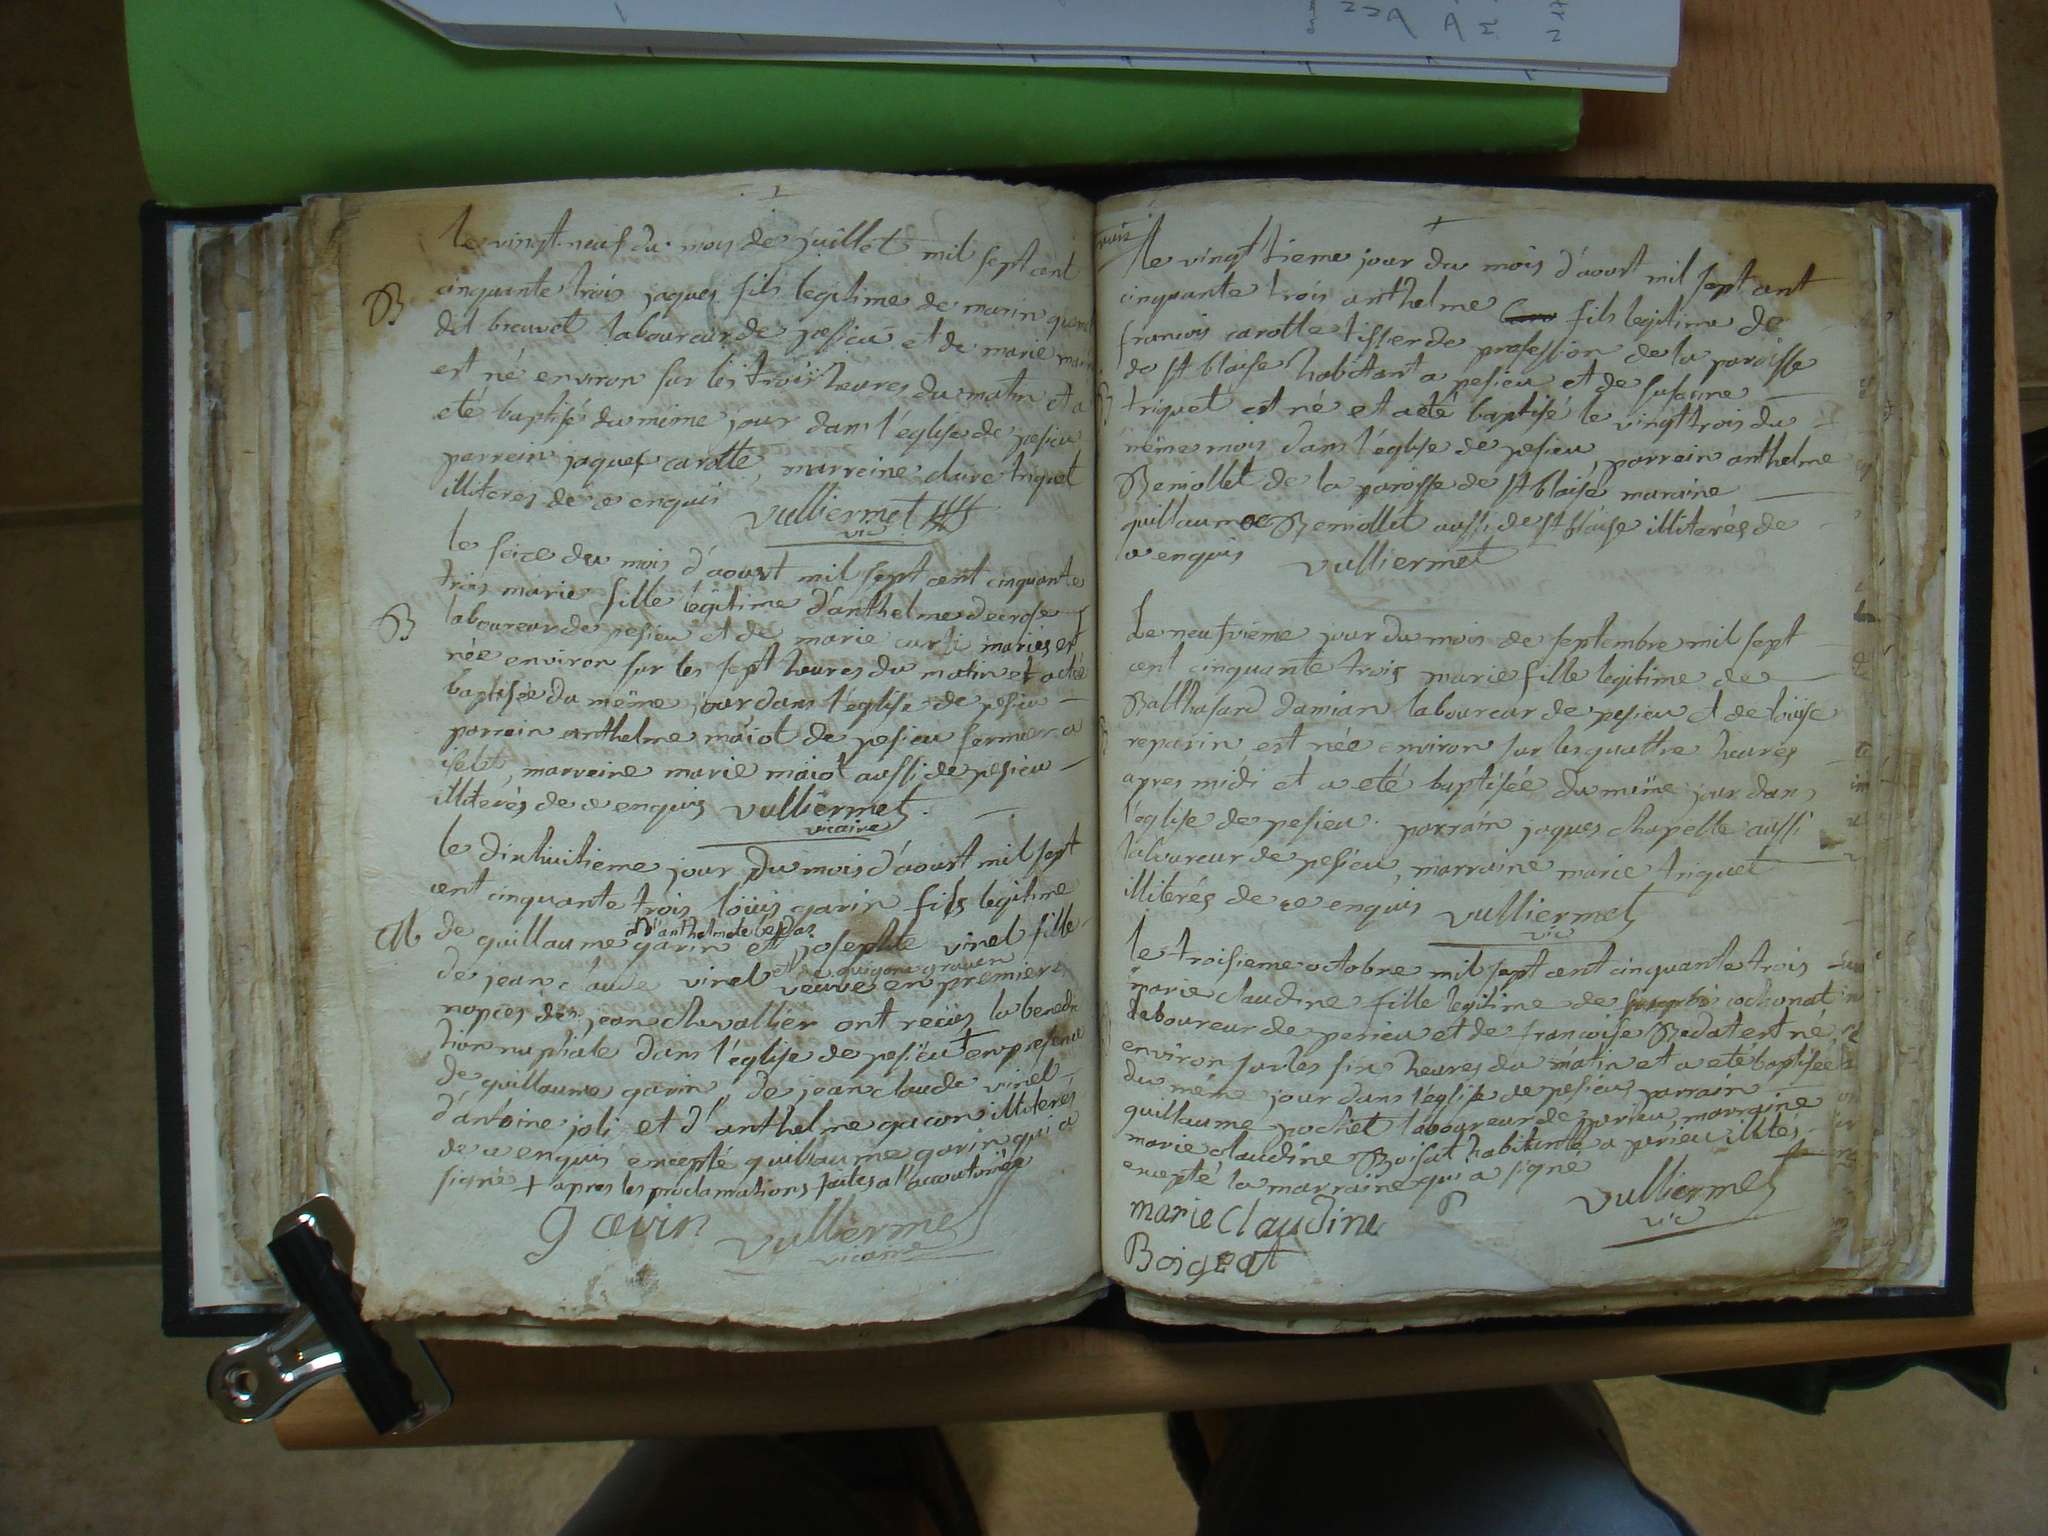 le vingt neuf du mois de juillet mil sept cent
B
cinquante trois jaques fils legitime de marin
dit brevet laboureur de pesieu et de marie
est né environ sur les trois heures du matin et a
eté baptisé du même jour dans l'église de pesieu
parrein jaques carotte, marreine claire triquet
illiteres de ce enquis vulliermet
vic
le seize du mois d'aoust mil sept cent cinquante
trois marie fille legitime d'anthelme decrose
B
laboureur de pesieu et de marie curti mariés est
née environ sur les sept heures du matin et a eté
baptisée du même jour dans l'église de pesieu
parrein anthelme maiot de pesieu fermier a
marreine marie maiot aussi de pesieu
illiterés de ce enquis vulliermet
vicaire
le dixhuitieme jour du mois d'aoust mil sept
cent cinquante trois loüis garin fils legitime
M
de guillaume garin et josephte vinel fille
de jean claude vinel veuve en premiere
nopces de jean chevallier ont recus la benedi
tion nuptiale dans l'église de pesieu + en presence
de guillaume garin, de jean claude vinel
d'antoine joli et d'anthelme gacon illiterés
de ce enquis excepté guillaume garin qui a
signé + apres les proclamations faites a l'accoutumée
g garin vulliermet
vicaire
le vingttieme jour du mois d'aoust mil sept cent
cinquante trois anthelme fils legitime de
francois carotte tissier de profession de la paroisse
de st blaise habitant a pesieu et de susanne
triquet est né et a eté baptisé le vingt trois du
même mois dans l'église de pesieu, parrain anthelme
Bemollet de la paroisse de st blaise maraine
guillaumee Bemollet aussi de st blaise illiterés de
ce enquis vulliermet
Le neufvieme jour du mois de septembre mil sept
cent cinquante trois marie fille legitime de
Balthasard damian laboureur de pesieu et de loüise
reparin est née environ sur les quattre heures
apres midi et a eté baptisée du même jour dans
l'église de pesieu. parrain jaques chapelle aussi
laboureur de pesieu, marraine marie triquet
illiterés de ce enquis vulliermet
vic
le troisieme octobre mil sept cent cinquante trois
marie claudine fille legitime de cochonat
laboureur de perieu et de francoise Badat est né
environ sur les six heures du matin et a eté baptisée
du même jour dans l'église de pesieu parrain
guillaume pochet laboureur de parieu, marraine
marie claudine Boisat habitante a parieu illités
excepté la marraine qui a signe
vulliermet
vic
marie Claudine
Boigeat